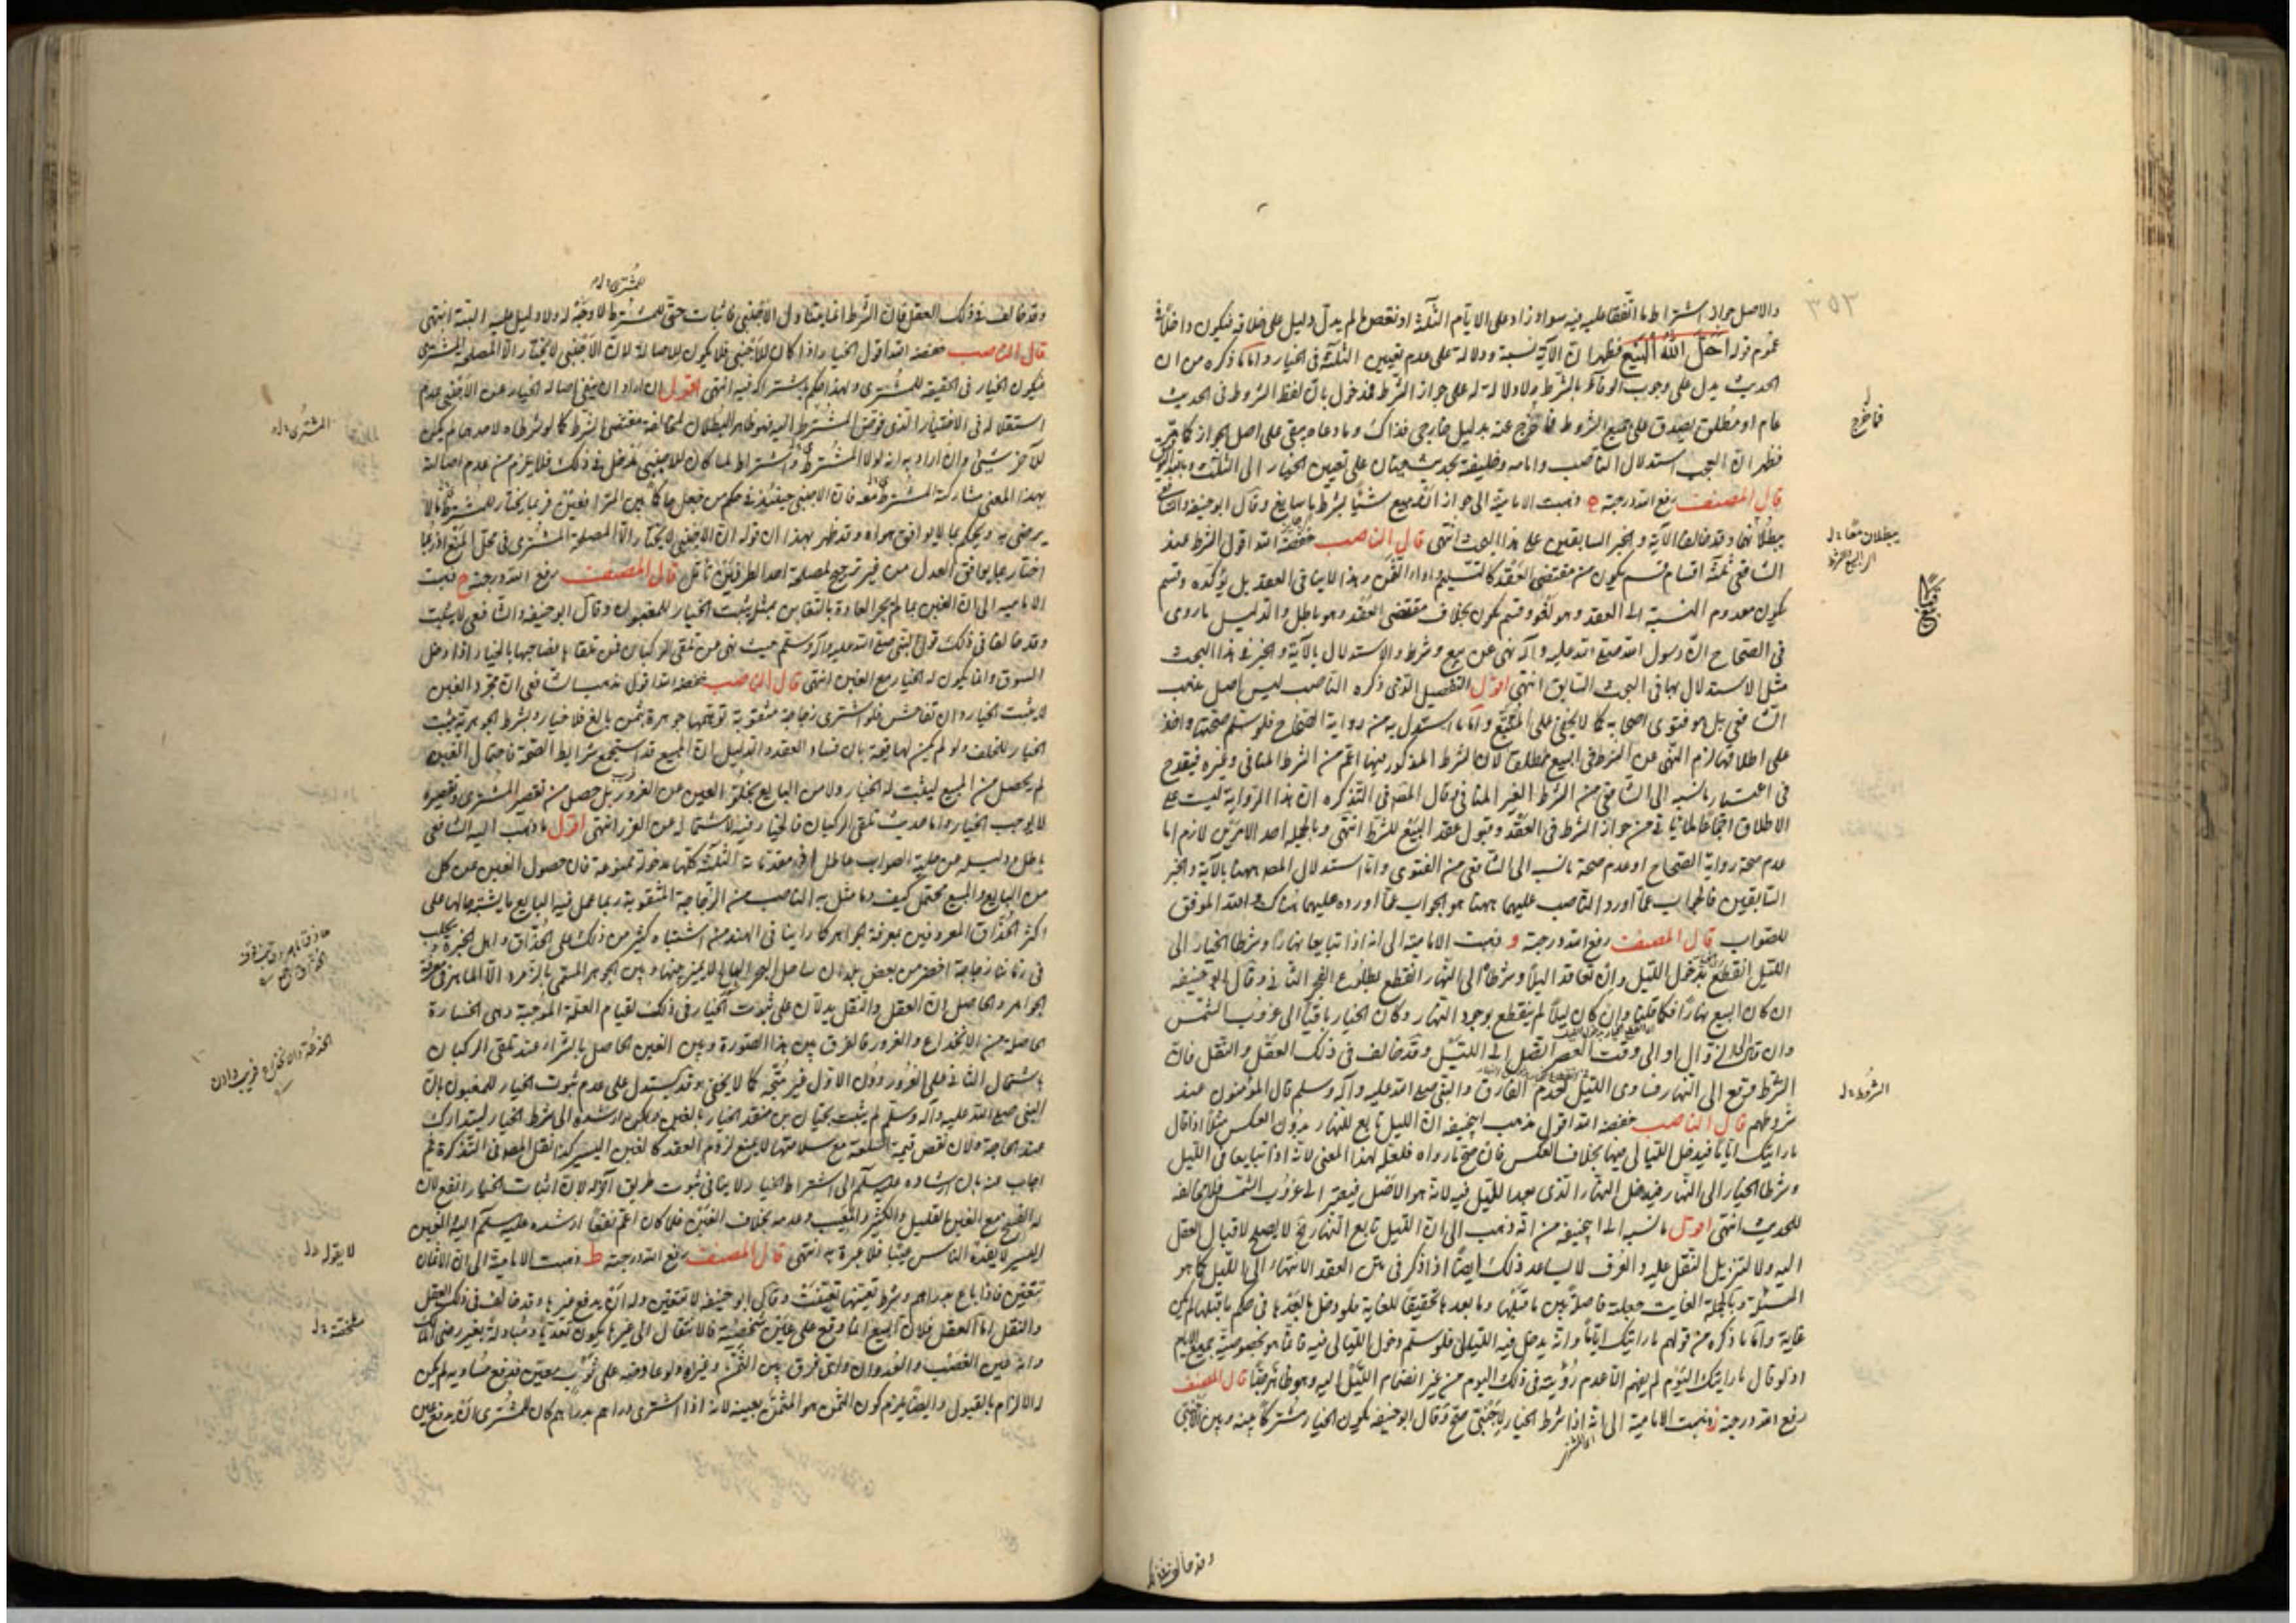 ٣٥٣
والاصل جواز اشتراط ما اتفقا عليه فيه سواء زاد على الايام الثلثة او نقص لم يدل دليل على خلافه فيكون داخلا فى
عموم قوله احل الله البيع فظهر ان الآية دلالة على عدم تعيين الثلثة فى الخيار واما ما ذكره من ان
الحديث يدل على وجوب الوفاء بالشرط ولا دلالة له على جواز الشرط فمدخول بان لفظ الشروط فى الحديث
عام او مطلق يصدق على جميع الشروط فما خرج عنه بدليل خارجى فذاك وما عداه يبقى على اصل الجواز
فظهر ان العجب استدلال الناصب وامامه بحديث حبان على تعيين الخيار الى الثلث
قال المصنف رفع الله درجته ه ذهبت الامامية الى جواز ان يبيع شيئا بشرط وقال ابو حنيفة والشافعى
وقد خالفا الآية والخبر السابقين على هذا البحث انتهى قال الناصب خفضه الله اقول الشرط عند
الشافعى ثلثة اقسام قسم يكون من مقتضى العقد كالتسليم واداء الثمن وهذا لا ينافى العقد بل يؤكده وقسم
يكون معدوم النسبة الى العقد وهو لغو وقسم يكون بخلاف مقتضى العقد وهو باطل والدليل ما روى
فى الصحاح ان رسول الله صلى الله عليه وآله نهى عن بيع وشرط والاستدلال بالآية والخبر فى هذا البحث
مثل الاستدلال بهما فى البحث السابق انتهى اقول التفصيل الذى ذكره الناصب ليس اصل مذهب
الشافعى بل هو فتوى اصحابه كما لا يخفى على المتتبع واما ما استدل به من رواية الصحاح فلو سلم صحتها واخذ
على اطلاقها لزم النهى عن الشرط فى البيع مطلقا لان الشرط المذكور فيها اعم من الشرط المنافى وغيره فيقدح
فى اعتبار ما نسبه الى الشافعى من الشرط الغير المنافى وقال المصنف فى التذكرة ان هذا الرواية ليست على
الاطلاق اجماعا لما يأتى من جواز الشرط فى العقد وقبول عقد البيع للشرط انتهى وبالجملة احد الامرين لازم اما
عدم صحة رواية الصحاح او عدم صحة ما نسب الى الشافعى من الفتوى واما استدلال المصنف ههنا بالآية والخبر
السابقين فالجواب عما اورد الناصب عليهما ههنا هو الجواب عما اورده عليهما هناك والله الموفق
للصواب قال المصنف رفع الله درجته و ذهبت الامامية الى انه اذا تبايعا نهارا وشرطا الخيار الى
الليل انقطع بدخول الليل وان تعاقدا ليلا وشرطاه الى النهار انقطع بطلوع الفجر الثانى وقال ابو حنيفة
ان كان البيع نهارا فكما قلنا وان كان ليلا لم ينقطع بوجود النهار وكان الخيار باقيا الى غروب الشمس
وان قال الى الزوال او الى وقت العصر اتصل الى الليل وقد خالف فى ذلك العقل والنقل فان
الشرط وقع الى النهار فساوى الليل لعدم الفارق والنبى صلى الله عليه وآله وسلم قال المؤمنون عند
شروطهم قال الناصب خفضه الله اقول مذهب ابيحنيفة ان الليل تابع للنهار بدون العكس مثلا اذا قال
ما رايتك اياما فيدخل الليالى فيها بخلاف العكس فان صح ما رواه فلعله لهذا المعنى لانه اذا تبايعا فى الليل
وشرطا الخيار الى النهار فيدخل النهار الذى بعد الليل فيه لانه هو الاصل فيعتبر الى غروب الشمس فلا مخالفة
للحديث انتهى اقول ما نسبه الى ابيحنيفة من انه ذهب الى ان الليل تابع النهار لا يصلح لاقبال العقل
اليه ولا لتنزيل النقل عليه والعرف لا يساعد ذلك ايضا اذا ذكر فى متن العقد الانتهاء الى الليل كما هو
المسئلة وبالجملة الغايت جعلت فاصلة بين ما قبلها وما بعدها تحقيقا للغاية فلو دخل ما بعدها فى حكم ما قبلها لم يكن
غاية واما ما ذكره من قولهم ما رايتك اياما وانه يدخل فيه الليالى فلو سلم دخول الليالى فيه فانما هو بخصوصية جمع الايام
اذ لو قال ما رايتك اليوم لم يفهم الا عدم رؤيته فى ذلك اليوم من غير انضمام الليل اليه وهو ظاهر جدا قال المصنف
رفع الله درجته ز ذهبت الامامية الى انه اذا شرط الخيار لاجنبى صح وقال ابو حنيفة يكون الخيار مشتركا بينه وبين الاجنبى
فاخرج
الشروط
وقد خالف فى ذلك
للمشترى
وقد خالف فى ذلك العقل فان الشرط انما يتناول الاجنبى فاثبات حق للمشترط لا وجه له ولا دليل عليه البتة انتهى
قال الناصب خفضه الله اقول الخيار اذا كان للاجنبى فلا يكون للاصالة لان الاجنبى لا يختار الا لمصلحة المشترى
فيكون الخيار فى الحقيقة للمشترى ولهذا حكم باشتراكه فيه انتهى اقول ان اراد ان بنفى اصالة الخيار عن الاجنبى عدم
استقلاله فى الاختيار الذى فوض المشترط اليه فهو ظاهر البطلان لمخالفة مقتضى الشرط كما لو شرطاه لاحدهما لم يكن
للآخر شىء وان اراد به انه لولا المشترط والاشتراط لما كان للاجنبى مدخل فى ذلك فلا يلزم من عدم اصالته
بهذا المعنى مشاركة المشترط معه فان الاجنبى حينئذ فى حكم من جعل حاكما بين المترافعين فربما يختار للمشترط ما لا
يرضى به ويحكم بما لا يوافق هواه وقد ظهر بهذا ان قوله ان الاجنبى لا يختار الا لمصلحة المشترى فى محل المنع اذ ربما
اختار ما يوافق العدل من غير ترجيح لمصلحة احد الطرفين تأمل قال المصنف رفع الله درجته ح ذهبت
الامامية الى ان الغبن بما لم يجر العادة بالتغابن بمثله يثبت الخيار للمغبون وقال ابو حنيفة والشافعى لا يثبت
وقد خالفا فى ذلك قول النبى صلى الله عليه وآله وسلم حيث نهى عن تلقى الركبان فمن تلقاها فصاحبها بالخيار اذا دخل
السوق وانما يكون له الخيار مع الغبن انتهى قال الناصب خفضه الله اقول مذهب الشافعى ان مجرد الغبن
لا يثبت الخيار وان تفاحش فلو اشترى زجاجة مثقوبة توهمها جوهرة بثمن بالغ فلا خيار وبشرط الجوهرية يثبت
الخيار للتخلف ولو لم يكن لها قيمة بان فساد العقد والدليل ان المبيع قد استجمع شرايط الصحة فاحتمال الغبن
لم يحصل من المبيع ليثبت له الخيار ولا من البايع بخلو العين عن الغرور بل حصل من تقصير المشترى وتقصيره
لا يوجب الخيار واما حديث تلقى الركبان فالخيار فيه لاشتماله عن الغرر انتهى اقول ما ذهب اليه الشافعى
من البايع والمبيع محتمل كيف وما مثل به الناصب من الزجاجة المثقوبة ربما عمل فيها البايع ما يشتبه حالها على
اكثر الحذاق المعروفين بمعرفة الجواهر كما راينا فى الهند من اشتباه كثير من ذلك على الحذاق واهل الخبرة
الجواهر والحاصل ان العقل والنقل يدلان على ثبوت الخيار فى ذلك لقيام العلة الموجبة وهى الخسارة
الحاصلة من الانخداع والغرور فالفرق بين هذا الصورة وبين الغبن الحاصل بالشراء عند تلقى الركبان
باشتمال الثانى على الغرور دون الاول غير متجه كما لا يخفى وقد يستدل على عدم ثبوت الخيار للمغبون بان
النبى صلى الله عليه وآله وسلم لم يثبت بحبان بن منقذ الخيار بالغبن ولكن ارشده الى شرط الخيار ليتدارك
عند الحاجة ولان نقص قيمة السلعة مع سلامتها لا يمنع لزوم العقد كالغبن اليسير كذا نقل المصنف فى التذكرة ثم
اجاب عنه بان ارشاده عليه السلام الى اشتراط الخيار لا ينافى ثبوت طريق آخر له لان اثبات الخيار انفع لان
له الفسخ مع الغبن القليل والكثير والعيب وعدمه بخلاف الغبن فلما كان اعم نفعا ارشده عليه السلام اليه والغبن
اليسير لا يعده الناس عيبا فلا عبرة به انتهى قال المصنف رفع الله درجته ط ذهبت الامامية الى ان الاثمان
تتعين فاذا باع بدراهم وشرط تعينها تعينت وقال ابو حنيفة لا تتعين وله ان يدفع غيرها وقد خالف فى ذلك العقل
والنقل اما العقل فلان البيع انما وقع على عين شخصية فالانتقال الى غيرها يكون تعديا ومبادلة بغير رضى المالك
وانه عين الغصب والعدوان واى فرق بين الثمن وغيره ولو عاوضه على ثوب معين فدفع مساويه لم يكن
له الالزام بالقبول وايضا يلزم كون الثمن هو المثمن بعينه لانه اذا اشترى دراهم بدراهم كان للمشترى ان يدفع عين
المشترى